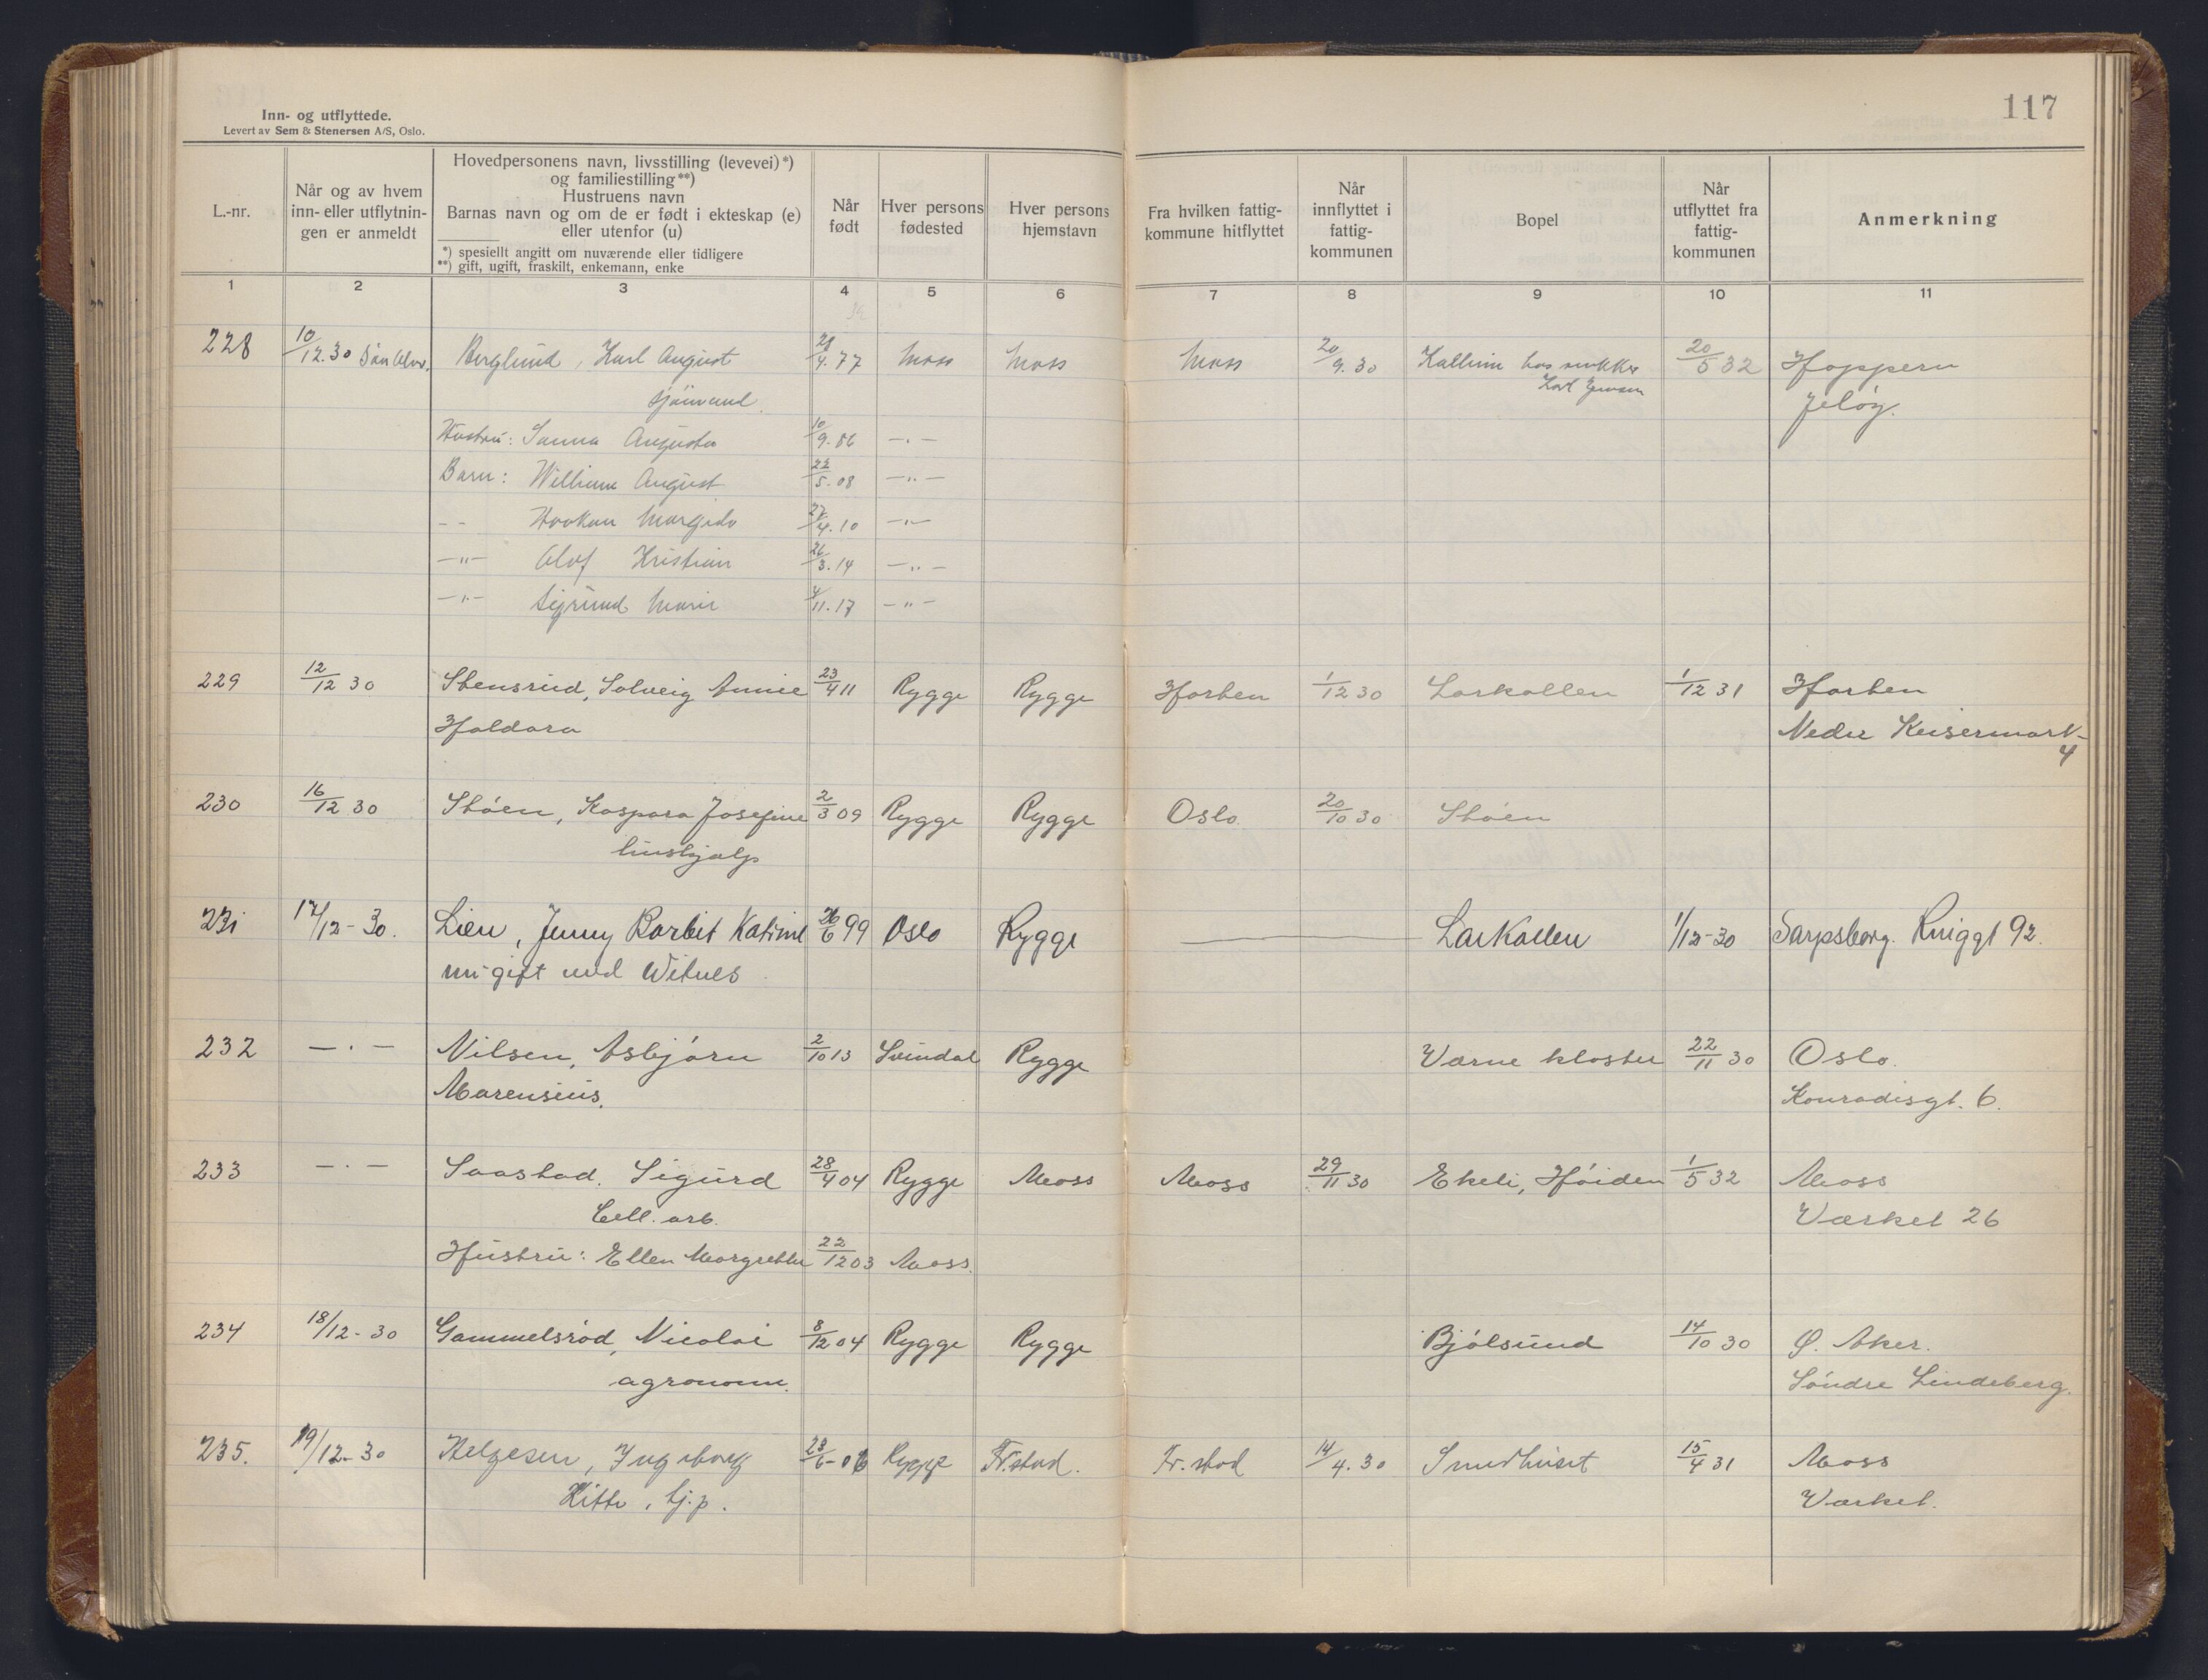 Inn- og utflyttede.
Levert av Sem & Stenersen A/S, Oslo.
117
L.-nr.
Når og av hvem inn- eller utflytnin- gen er anmeldt
Hovedpersonens navn, livsstilling (levevei) *)
og familiestilling **)
Hustruens navn
Barnas navn og om de er født i ekteskap (e)
eller utenfor (u)
*) spesielt angitt om nuværende eller tidligere
**) gift, ugift, fraskilt, enkemann, enke
Når født
Hver persons fødested
Hver persons hjemstavn
Fra hvilken fattig- kommune hitflyttet
Når innflyttet i fattig- kommunen
Bopel
Når utflyttet fra fattig- kommunen
Anmerkning
1 2 3 4 5 6 7 8 9 10 11
228 10/12.30 Berglund, Karl August 28/4.77 Moss Moss Moss 20/9.30 Kallum hos snekker 20/5 32 Hoppern
Sjømand Karl Jensen Jeløy.
Hustru: Sanna Augusta 10/9.86 -.-
Barn: William August 22/5.08 -"-
-- Haakon 27/4.10 -"-
-"- Olof Kristian 26/3.14 -"-
-"- Sigrund Marie 4/11.17 -"-
229 12/12 30 Stensrud, Solveig Annie 23/4 11 Rygge Rygge Horten 1/12 30 Larkollen 1/12 31 Horten
Haldora Nedre Keisermark- 4
230 16/12 30 Støen, Kaspara Josefine 2/3 09 Rygge Rygge Oslo. 20/10 30 Støen
hushjalp
231 17/12-30. Lien, Jenny Borbit Katrine 26/6 99 Oslo Rygge — Larkollen 1/12-30 Sarpsborg. Ringgt 92.
nu gift med Witnes
232 -.- Nilsen, Asbjørn 2/10 13 Svindal Rygge Værne kloster 22/11 30 Oslo.
Marensius. Konradisgt. 6.
233 -.- Saastad, Sigurd 28/4 04 Rygge Moss Moss 29/11 30 Ekeli, Høiden 1/5 32 Moss
Cell. arb. Værket 26
Hustru: Ellen Margrethe 22/12 03 Moss.
234 18/12-30 Gammelsrød, Nicolai 8/12 04 Rygge Rygge Bjølsund 14/10 30 Ø. Aker.
agronom. Søndre Lindeberg.
235. 19/12-30 Helgesen, Ingeborg 23/6-06 Rygge Fr.stad. Fr.stad 14/4.30 Smedhuset 15/4 31 Moss
Kitty, tj.p. Værket.